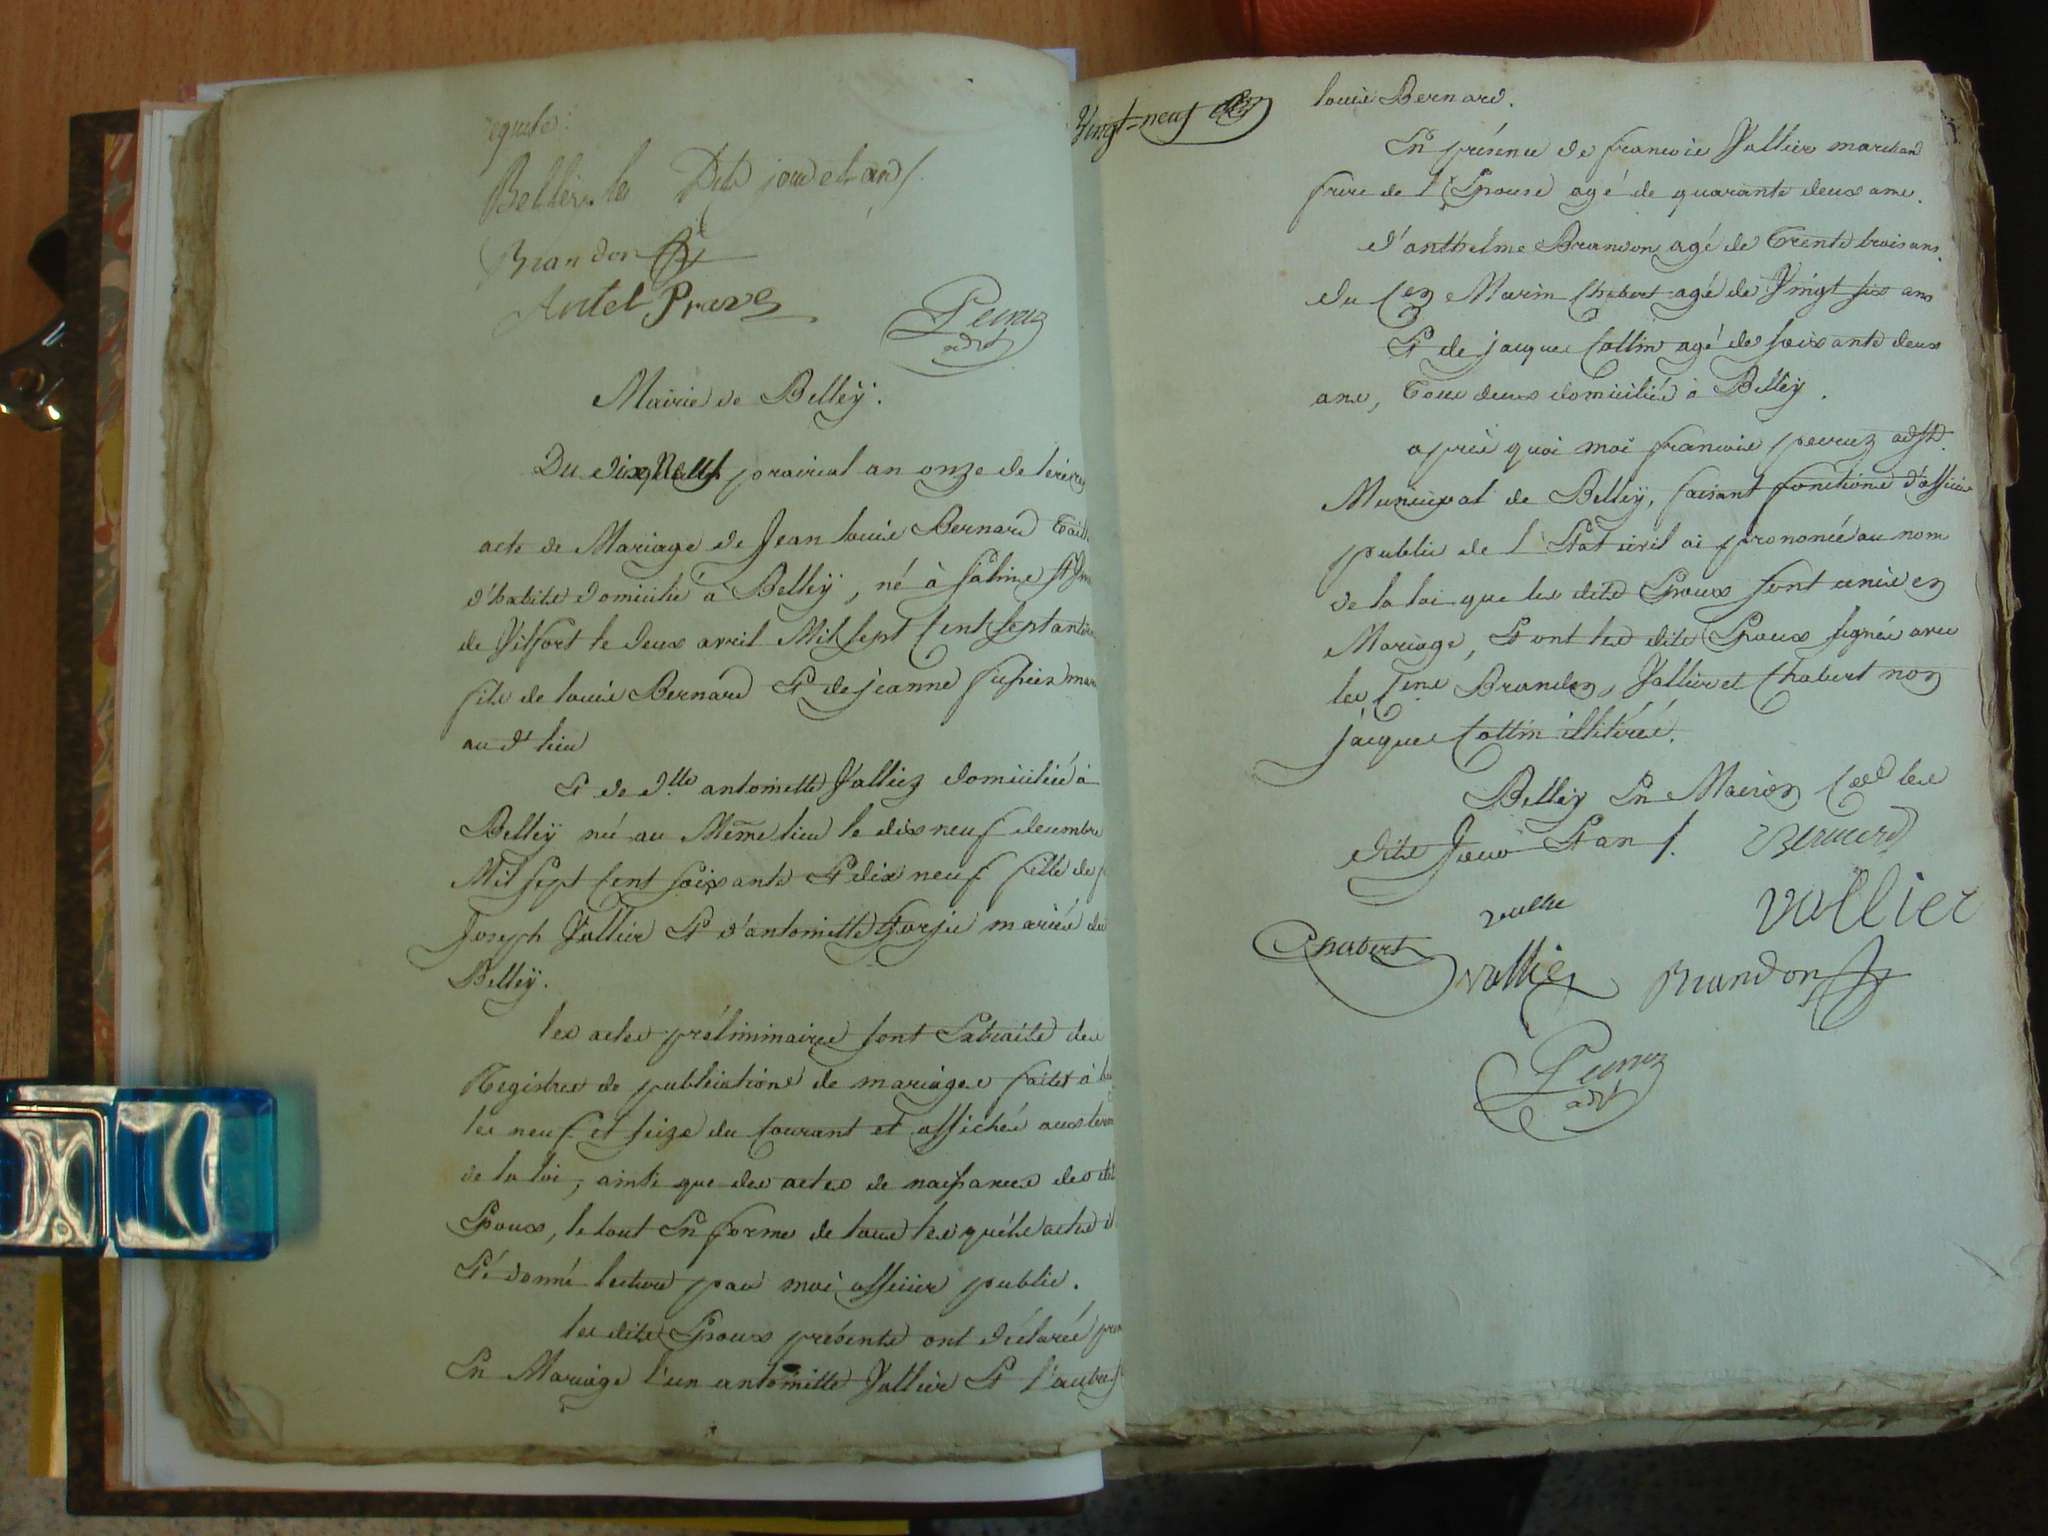 requite.
Belley les Dits jour et an /.
Brandon
Antel Pravaz
Peuruz
adjt
Mairie de Belleÿ.
Du dix prairial an onze de l'ére
acte de Mariage de Jean louis Bernard
d'habits domicilié à Belleÿ, né à
de Vilfort le deux avril Mil sept Cent septante
fils de louis Bernard Et de jeanne
au dt lieu
Et de dlle antoinette Vallier domiciliée à
Belleÿ née au Même lieu le dix neuf decembre
Mil sept Cent soixante Et dix neuf fille de
Joseph Vallier Et d'antoinette mariés de
Belleÿ.
les actes préliminaires sont Extraits des
Registres de publications de mariages faites à
les neuf et seize du Courant et affichés aux
de la loi, ainsi que des actes de naissances des
Epoux, le tout En forme de tous les quels actes il
a été donné lecture par moi officier public.
les dits Epoux présents ont déclarés
En Mariage l'un antoinette Vallier Et l'autre
Vingt-neuf
louis Bernard.
En présence de francois Vallier marchand
frere de l'Epouse agé de quarante deux ans.
d'anthelme Brandon agé de Trente trois ans.
du Cen Marin Chabert agé de Vingt six ans
Et de jacques Collin agé de soixante deux
ans, Tous deux domiciliés à Belleÿ.
après quoi moi francois peuruz adjt.
Municipal de Belleÿ, faisant fonctions d'officier
public de l'Etat civil ai prononcé au nom
de la loi que les dits Epoux sont unis en
Mariage, Et ont les dits Epoux signés avec
les Cens Brandon, Vallier et Chabert non
jacques Collin illitéré.
Belley En Mairie les
dits Jour Et an /. Bernard
Vallier
Chabert Vallier Brandon
Peuruz
adjt